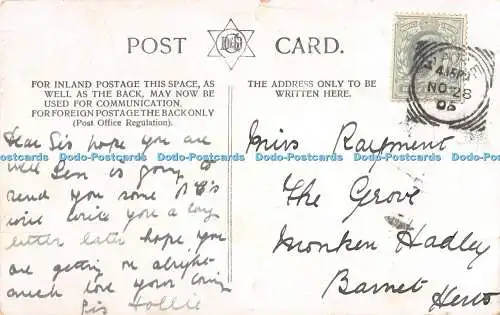 POST CARD.
FOR INLAND POSTAGE THIS SPACE, AS
WELL AS THE BACK, MAY NOW BE
USED FOR COMMUNICATION.
FOR FOREIGN POSTAGE THE BACK ONLY
(Post Office Regulation).
THE ADDRESS ONLY TO BE
WRITTEN HERE.
4.15PM
NO 28
Dear Sis hope you are
well Len is going to
send you some P.C's
will write you a long
letter later hope you
are getting on alright
much love your loving
Sis Hollie
Miss Rayment
The Grove
Monken Hadley
Barnet
Herts
Dodo-Postcards Dodo-Postcards Dodo-Postcards Dodo-Postcards Dodo-Postcards Dodo-Postcards